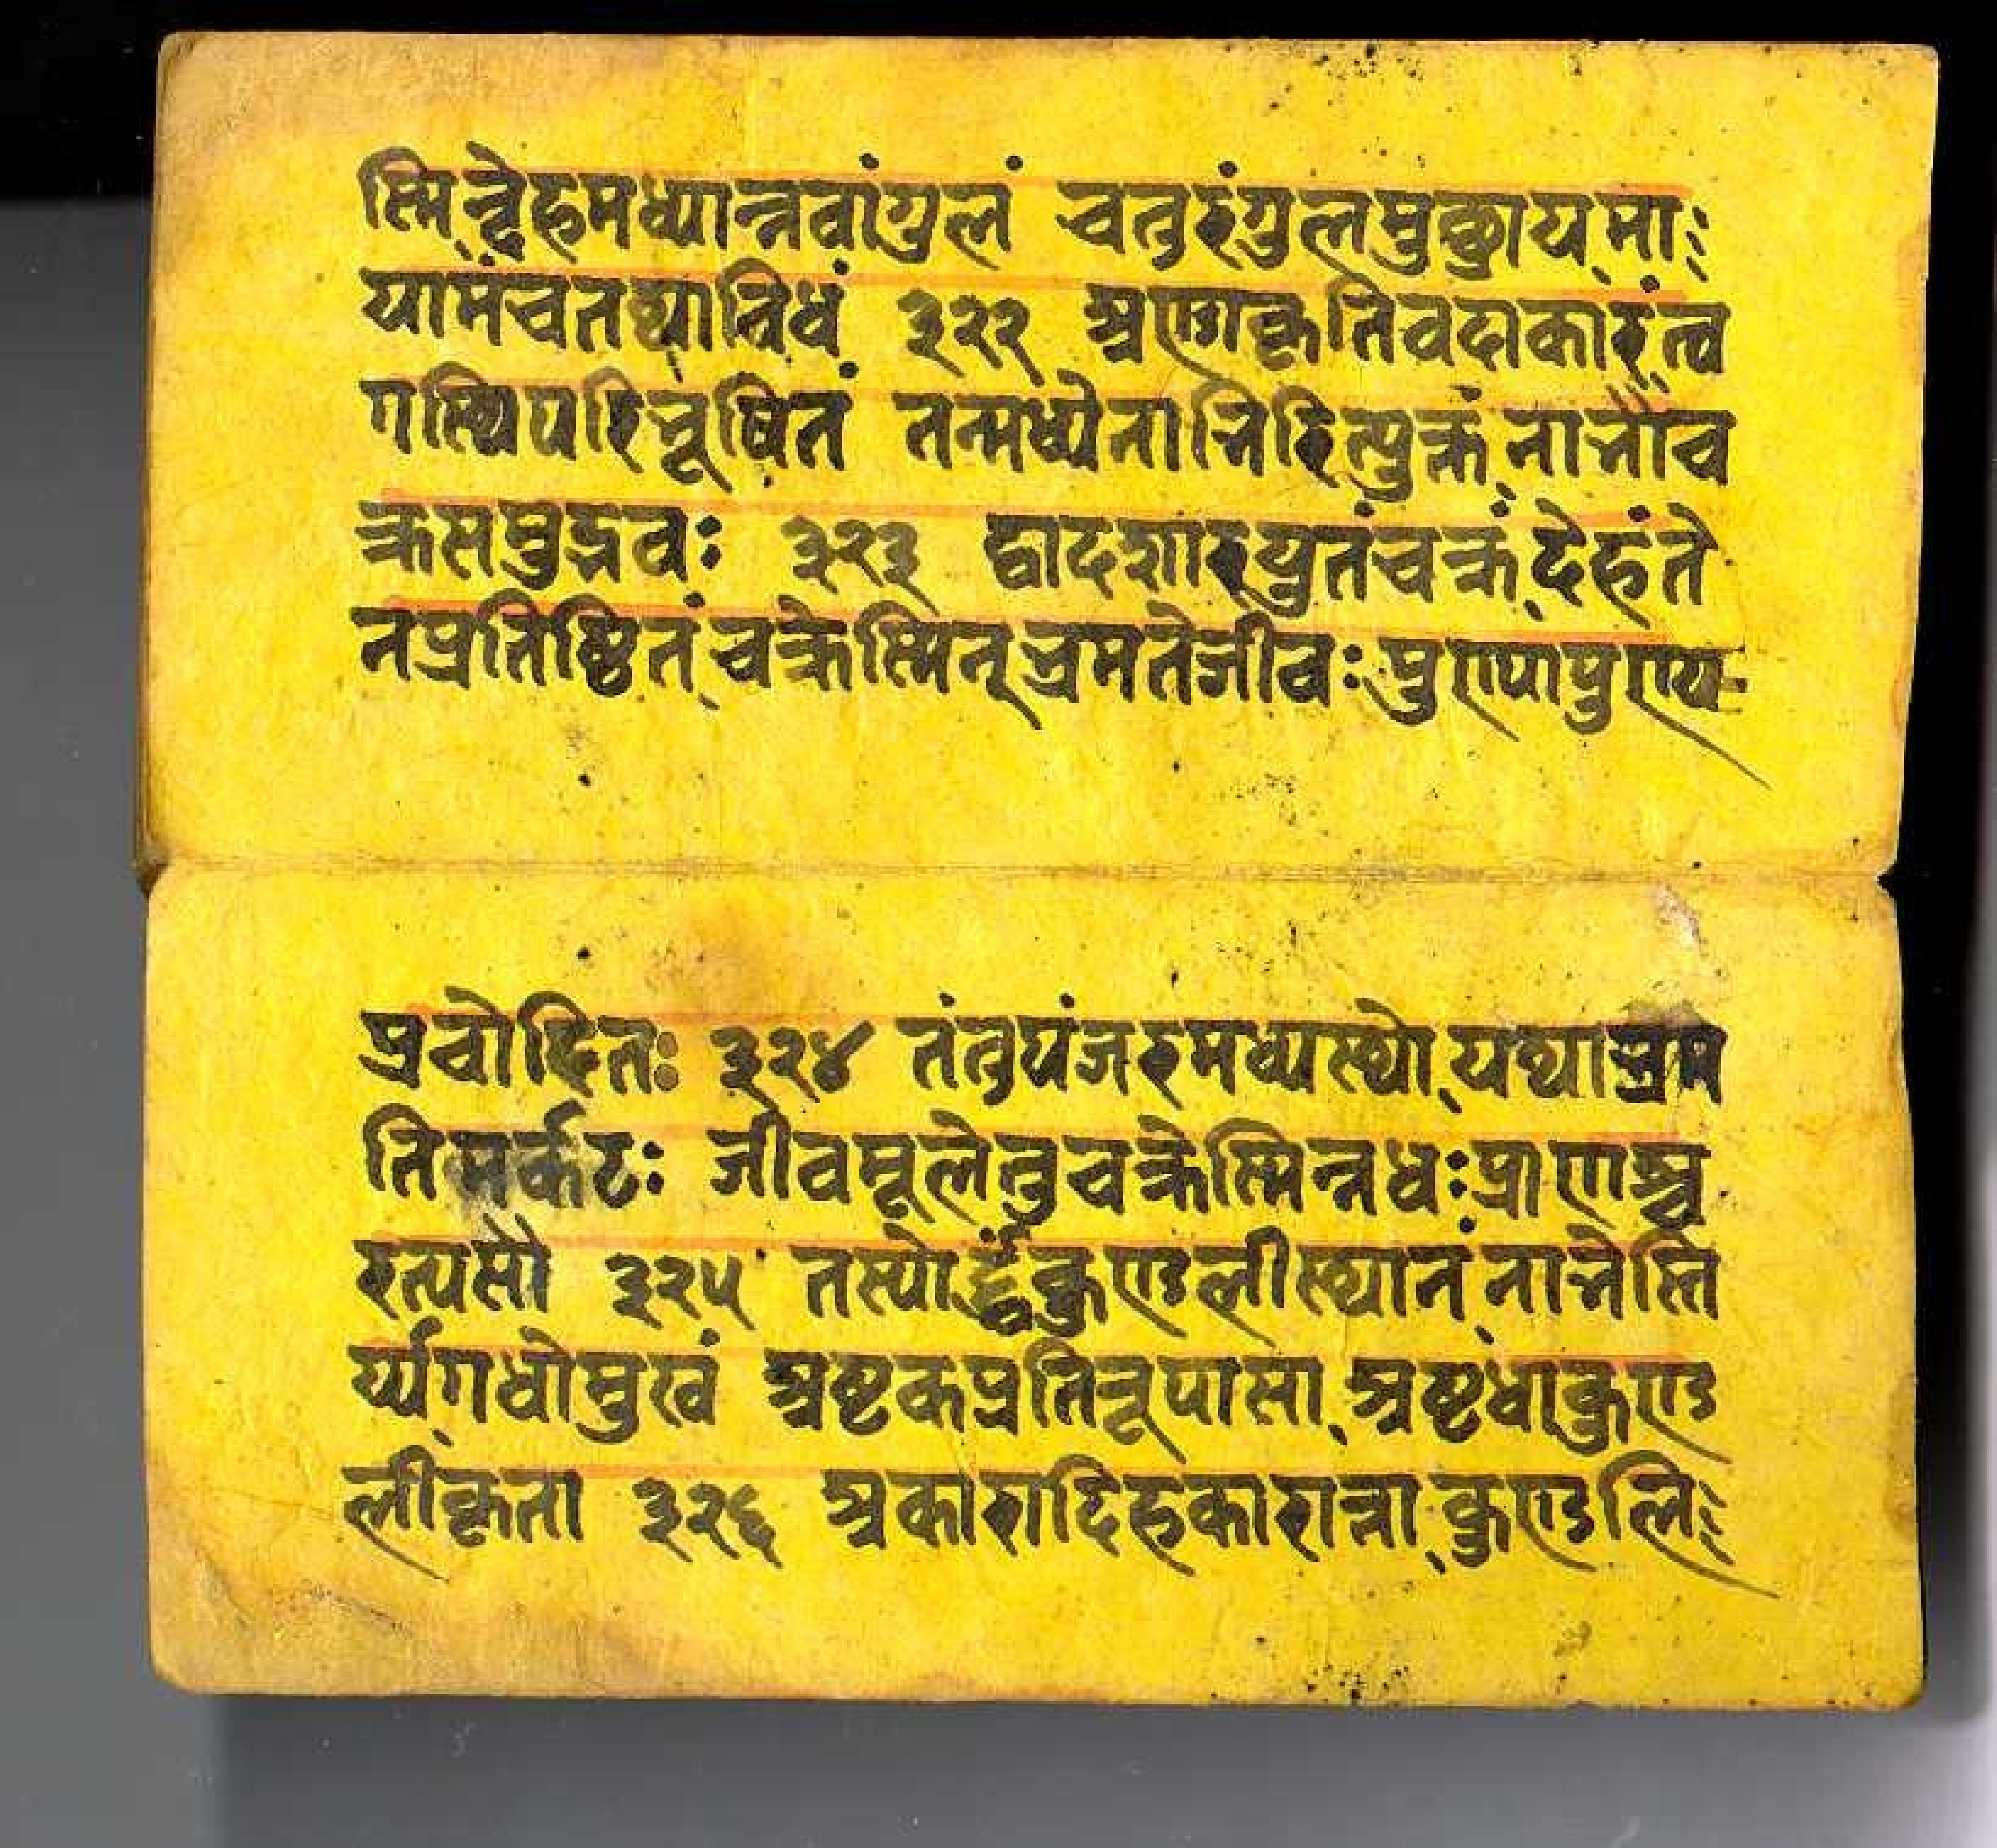 स्मिन्देहमध्यान्नवांगुलं चतुरंगुलमुच्छ्रायमा
यामंचतथाविधं ३२२ अण्डाकृतिवदाकारंत्व
गस्थिपरिभूषितं तन्मध्येनाभिरित्युक्तं नाभौच
क्रसमुद्भवः ३२३ द्वादशारयुतंचक्रं देहंते
नप्रतिष्ठितं चक्रेस्मिन्भ्रमतेजीवः पुण्यापुण्य
प्रचोदितः ३२४ तंतुपंजरमध्यस्थो यथाभ्रम
तिमर्कटः जीवमूलेतुचक्रेस्मिन्नधःप्राणश्च
रत्यसौ ३२५ तस्योर्द्ध्वंकुण्डलीस्थानं नाभेस्ति
र्य्यगधोमुखं अष्टकप्रतिरूपासा अष्टधाकुण्ड
लीकृता ३२६ अकारादिहकारान्ता कुण्डलि